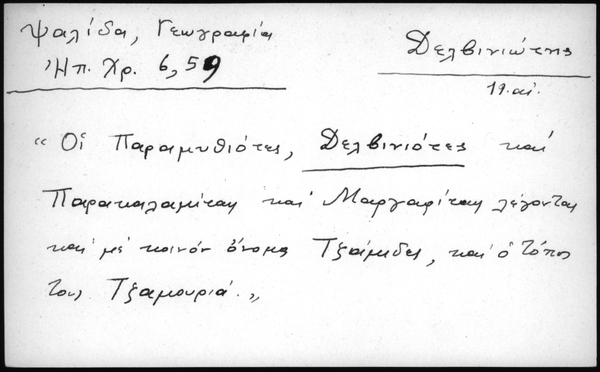 Ψαλίδα, Γεωγραφία
Ἠπ. Χρ. 6, 59
Δελβινιώτης
19. αἰ.
“ Οἱ Παραμυθιότες, Δελβινιότες καὶ
Παρακαλαμῖται καὶ Μαργαρῖται λέγονται
καὶ μὲ κοινὸν ὄνομα Τζάμιδες, καὶ ὁ τόπος
τους Τζαμουριά. „